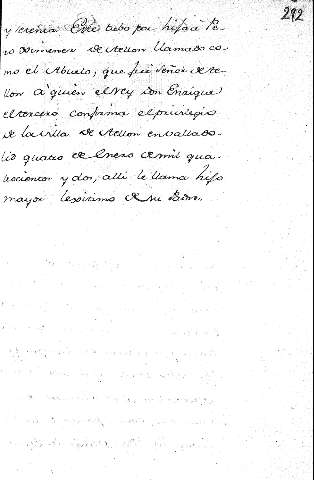 292
y treinta Este tubo por hijo à Pe-
ro Ximenez de Arellon llamado co-
mo el Abuelo, que fué Señor de Are-
llon à quien el Rey don Enrique
el tercero confirma el privilegio
de la Villa de Arellon en Vallado-
lid quatro de Enero de mil qua-
trocientos y dos, alli le llama hijo
mayor lexitimo de su Padre.